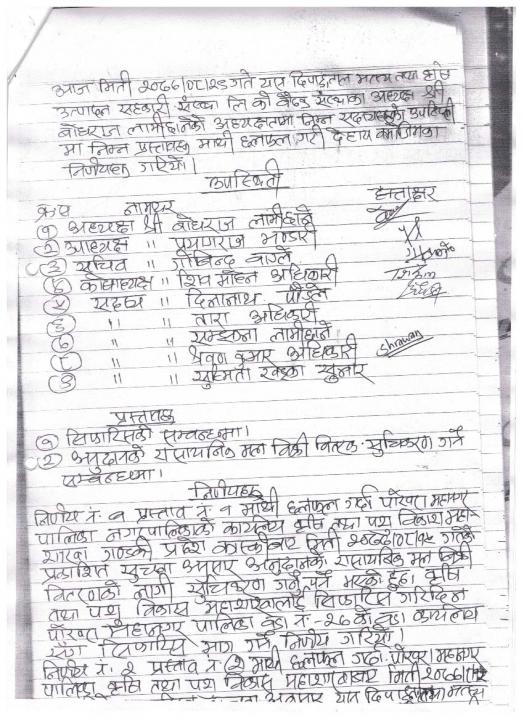 आज मिती २०७७/०८/२९ गते यस दिपाहलाल मत्स्य तथा कृषि
उत्पादन सहकारी संस्था लि को बैठक संस्थाका अध्यक्ष श्री
बोधराज लामीछानेको अध्यक्षतामा निम्न सदस्यहरुको उपस्थिती
मा निम्न प्रस्तावहरु माथी छलफल गरी देहाय बमोजिमका
निर्णयहरु गरियो।
उपस्थिती
क्र.स नामथर हस्ताक्षर
१ अध्यक्ष श्री बोधराज लामीछाने
२ उपाध्यक्ष " भण्डारी
३ सचिव " गोबिन्द वाग्ले
४ कोषाध्यक्ष " शिव मोहन अधिकारी
५ सदस्य " दिनानाथ पौडेल
६ " " तारा अधिकारी
७ " " लामीछाने
८ " " श्रवण कुमार अधिकारी Shrawan
९ " " सुस्मिता खड्का सुनार
प्रस्तावहरु
१ सिफारिसको सम्बन्धमा।
२ अनुदानको रासायनिक मल बिक्री वितरक सुचिकरण गर्ने
सम्बन्धमा।
निर्णयहरु
निर्णय नं: १ प्रस्ताव नं: १ माथी छलफल गर्दा पोखरा महानगर
पालिका नगरपालिकाको कार्यालय कृषि तथा पशु विकास महा
शाखा गण्डकी प्रदेश कास्कीबाट मिती गतेको
प्रकाशित सुचना अनुसार अनुदानको रासायनिक मल बिक्री
वितरणको लागी सुचिकरण गर्नु पर्ने भएको हुँदा कृषि
तथा पशु विकास महाशाखालाई सिफारिस गरिदिन
पोखरा महानगर पालिका वडा नं.-२७ को वडा कार्यालय
सँग सिफारिस माग गर्ने निर्णय गरियो।
निर्णय नं: २ प्रस्ताव नं २ माथी छलफल गर्दा पोखरा महानगर
पालिका कृषि तथा पशु विकास महाशाखाबाट मिती
अनुसार यस मत्स्य